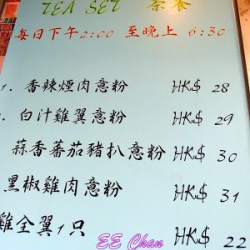 TEA SET 茶餐
每日下午2:00 至晚上 6:30
1. 香辣煙肉意粉 HK$ 28
白汁雞翼意粉 HK$ 29
蒜香蕃茄豬扒意粉 HK$ 30
黑椒雞肉意粉 HK$ 31
雞全翼1只 HK$ 22
EE Chan